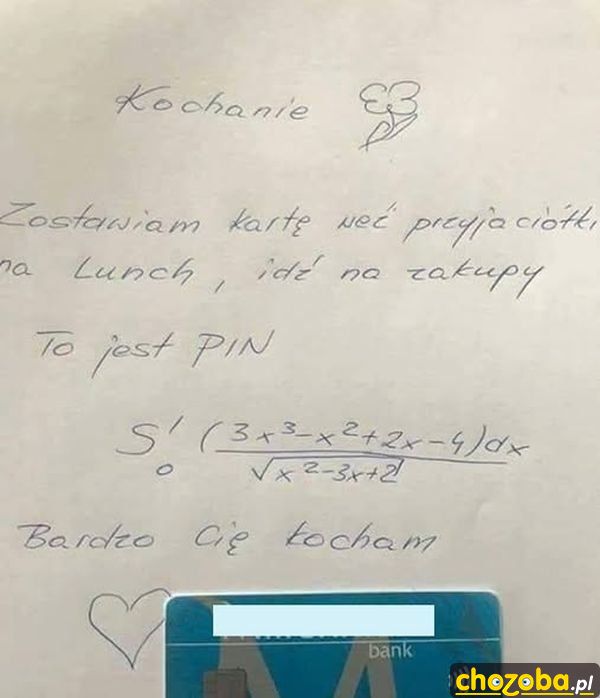 Kochanie
Zostawiam kartę weź przyjaciółki
na Lunch, idź na zakupy
To jest PIN
∫₀¹ (3x³-x²+2x-4)dx
√x²-3x+2
Bardzo Cię kocham
bank
chozoba.pl